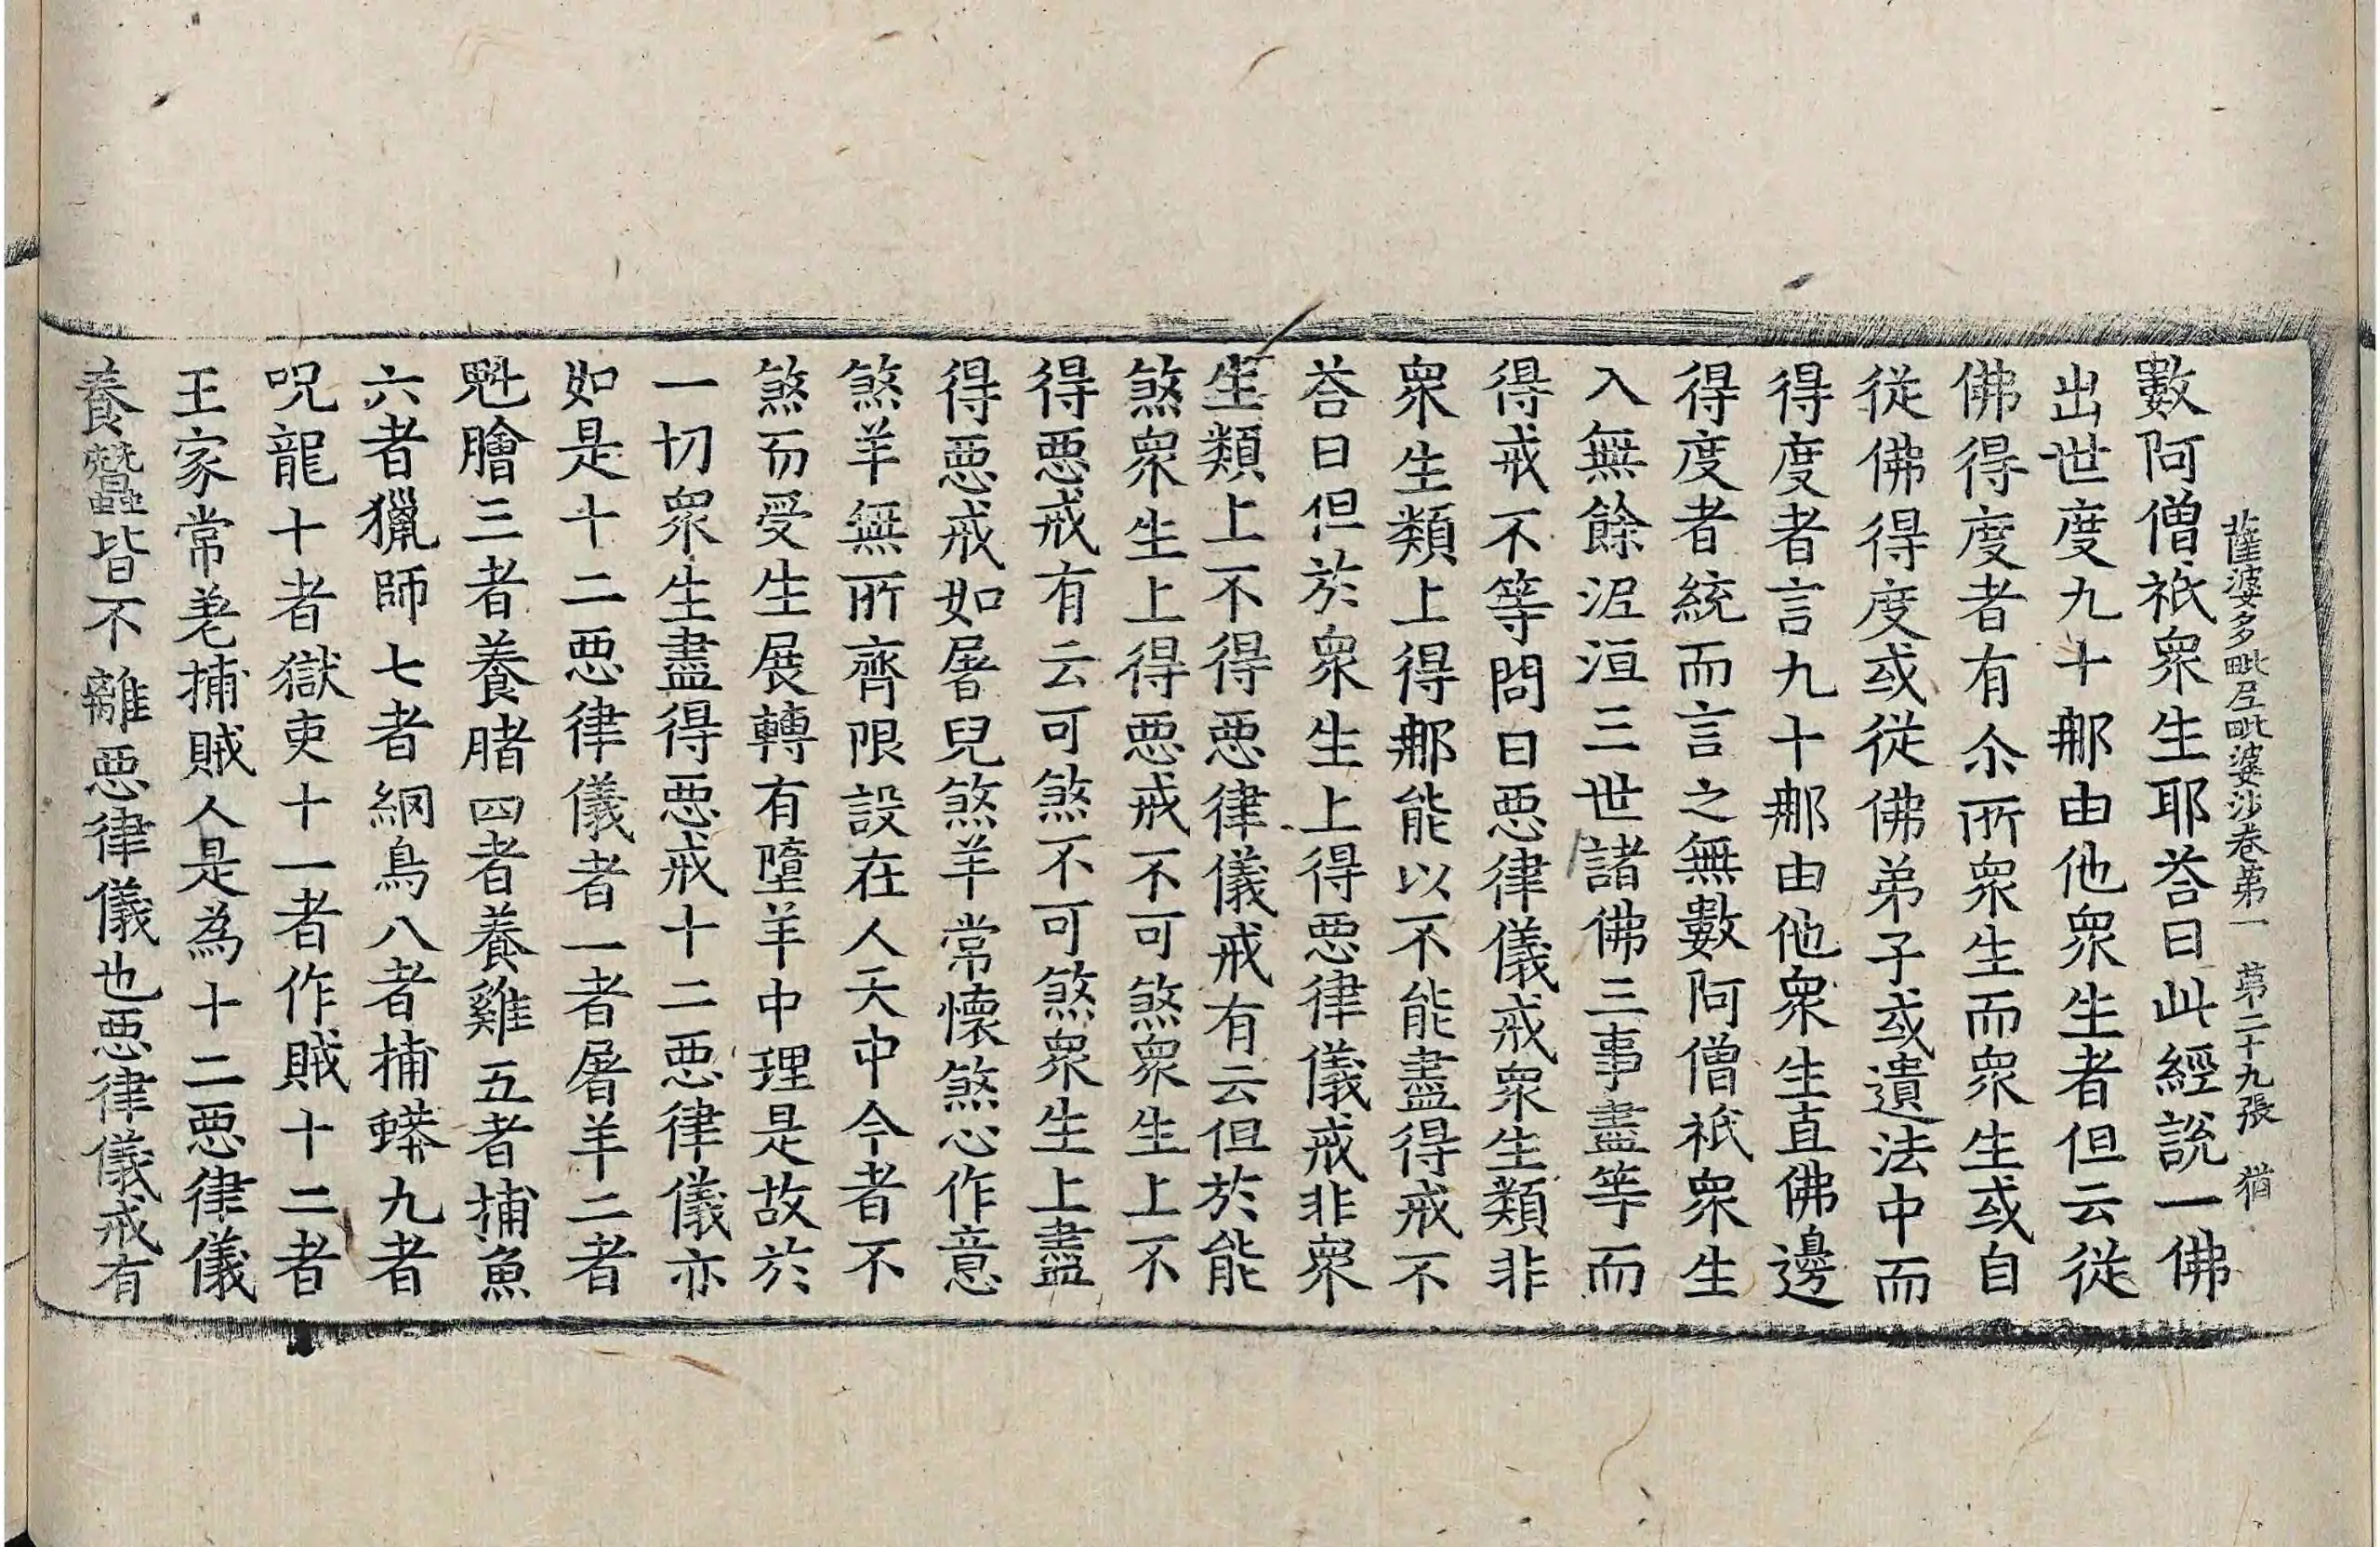 薩婆多毗尼毗婆沙卷第一　第二十九張　猶
數阿僧祇衆生耶荅曰此經說一佛
出世度九十那由他衆生者但云從
佛得度者有尒所衆生而衆生或自
從佛得度或從佛弟子或遺法中而
得度者言九十那由他衆生直佛邊
得度者統而言之無數阿僧祇衆生
入無餘泥洹三世諸佛三事盡等而
得戒不等問曰惡律儀戒衆生類非
衆生類上得那能以不能盡得戒不
荅曰但於衆生上得惡律儀戒非衆
生類上不得惡律儀戒有云但於能
煞衆生上得惡戒不可煞衆生上不
得惡戒有云可煞不可煞衆生上盡
得惡戒如屠兒煞羊常懷煞心作意
煞羊無所齊限設在人天中今者不
煞而受生展轉有墮羊中理是故於
一切衆生盡得惡戒十二惡律儀亦
如是十二惡律儀者一者屠羊二者
魁膾三者養腊四者養雞五者捕魚
六者獵師七者網鳥八者捕蟒九者
呪龍十者獄吏十一者作賊十二者
王家常差捕賊人是為十二惡律儀
養蠶皆不離惡律儀也惡律儀戒有